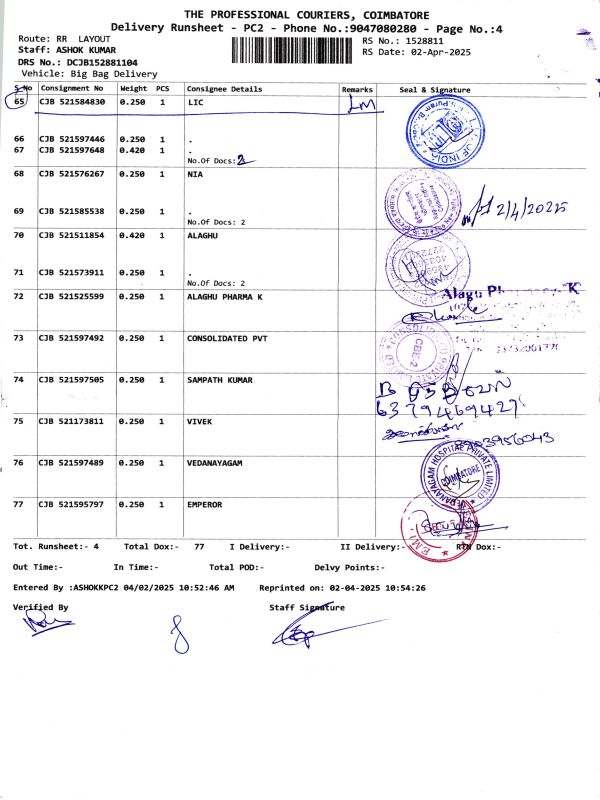 THE PROFESSIONAL COURIERS, COIMBATORE
Delivery Runsheet - PC2 - Phone No.:9047080280 - Page No.:4
Route: RR LAYOUT
RS No.: 1528811
Staff: ASHOK KUMAR
RS Date: 02-Apr-2025
DRS No.: DCJB152881104
Vehicle: Big Bag Delivery
S.No Consignment No Weight PCS Consignee Details Remarks Seal & Signature
65 CJB 521584830 0.250 1 LIC LM
66 CJB 521597446 0.250 1 .
67 CJB 521597648 0.420 1 .
No.Of Docs: 2
68 CJB 521576267 0.250 1 NIA
69 CJB 521585538 0.250 1 . 2/4/2025
No.Of Docs: 2
70 CJB 521511854 0.420 1 ALAGHU
71 CJB 521573911 0.250 1 .
No.Of Docs: 2
72 CJB 521525599 0.250 1 ALAGHU PHARMA K
73 CJB 521597492 0.250 1 CONSOLIDATED PVT CBE-2
74 CJB 521597505 0.250 1 SAMPATH KUMAR
6379469427
75 CJB 521173811 0.250 1 VIVEK
76 CJB 521597489 0.250 1 VEDANAYAGAM
VEDANAYAGAM HOSPITAL PRIVATE LIMITED
COIMBATORE
77 CJB 521595797 0.250 1 EMPEROR
Tot. Runsheet:- 4 Total Dox:- 77 I Delivery:- II Delivery:- RTN Dox:-
Out Time:- In Time:- Total POD:- Delvy Points:-
Entered By :ASHOKKPC2 04/02/2025 10:52:46 AM Reprinted on: 02-04-2025 10:54:26
Verified By Staff Signature